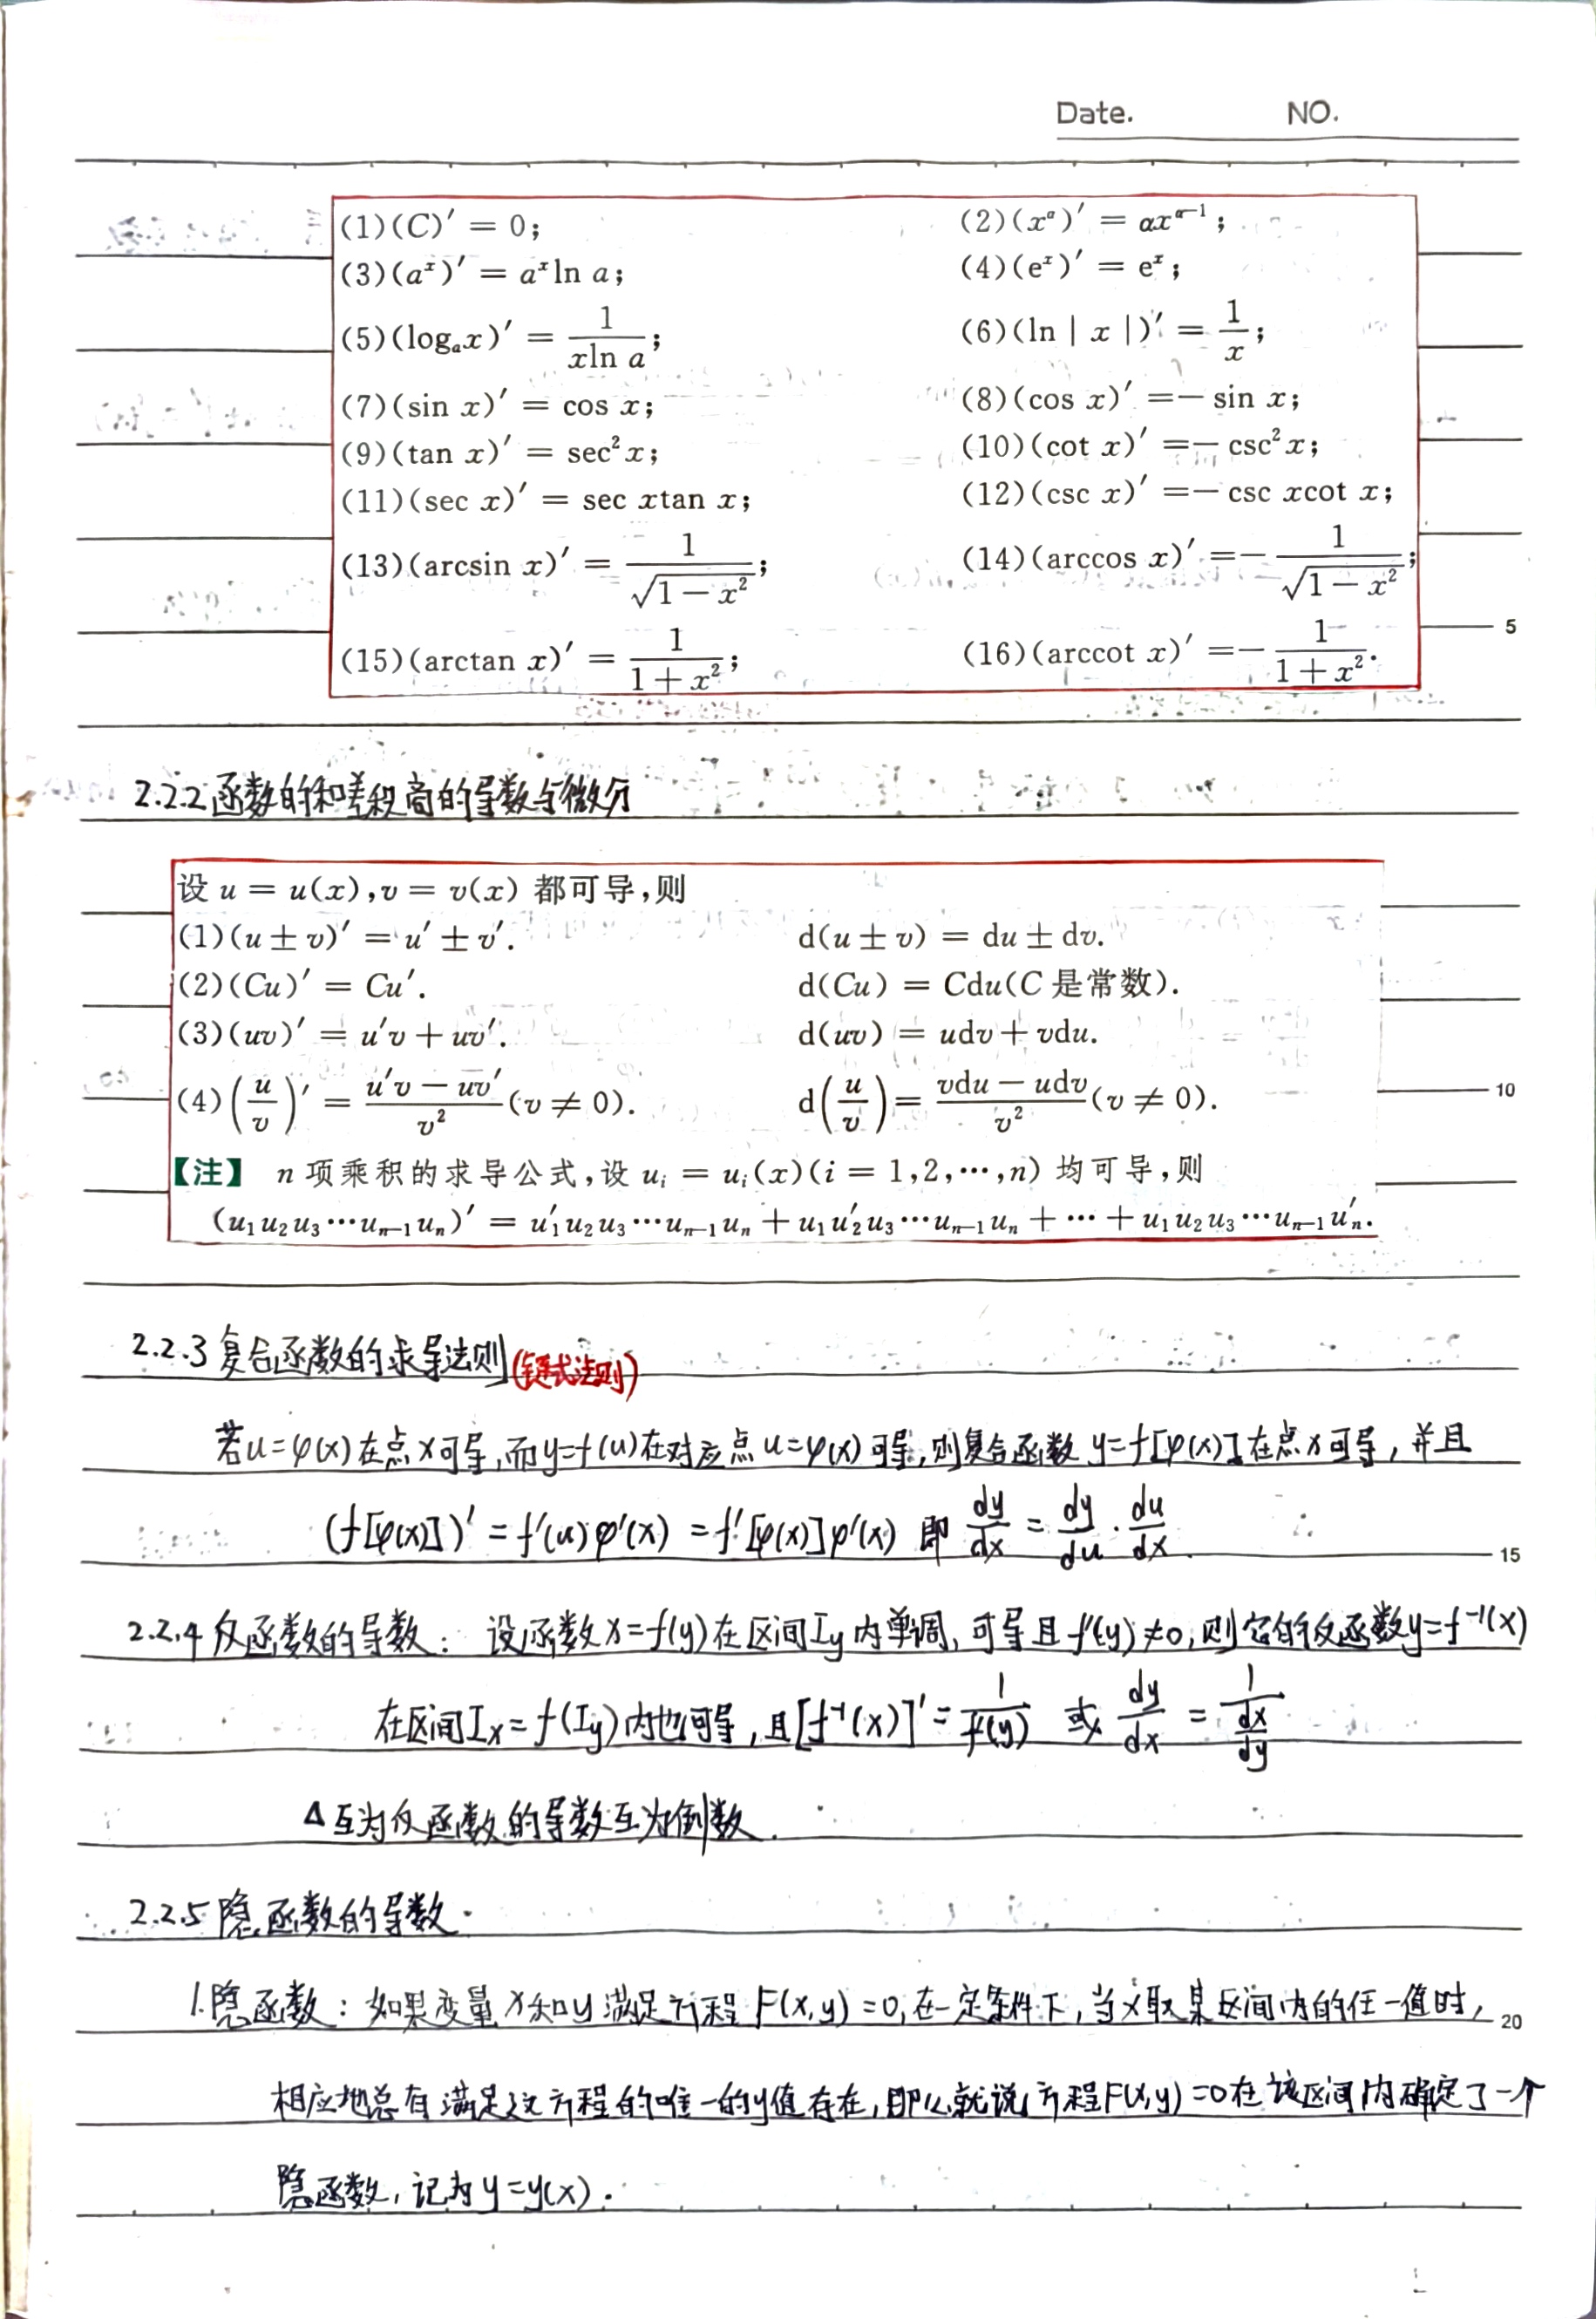 Date. NO.
(1)(C)′ = 0; (2)(x^α)′ = αx^{α−1};
(3)(a^x)′ = a^x ln a; (4)(e^x)′ = e^x;
(5)(log_a x)′ = \frac{1}{x ln a}; (6)(ln | x |)′ = \frac{1}{x};
(7)(sin x)′ = cos x; (8)(cos x)′ =− sin x;
(9)(tan x)′ = sec²x; (10)(cot x)′ =− csc²x;
(11)(sec x)′ = sec xtan x; (12)(csc x)′ =− csc xcot x;
(13)(arcsin x)′ = \frac{1}{\sqrt{1−x²}}; (14)(arccos x)′ =−\frac{1}{\sqrt{1−x²}};
5
(15)(arctan x)′ = \frac{1}{1+x²}; (16)(arccot x)′ =−\frac{1}{1+x²}.
2.2.2函数的和差积商的导数与微分
设 u = u(x),v = v(x) 都可导,则
(1)(u ± v)′ = u′ ± v′. d(u ± v) = du ± dv.
(2)(Cu)′ = Cu′. d(Cu) = Cdu(C 是常数).
(3)(uv)′ = u′v + uv′. d(uv) = udv + vdu.
(4)(\frac{u}{v})′ = \frac{u′v − uv′}{v²}(v ≠ 0). d(\frac{u}{v}) = \frac{vdu − udv}{v²}(v ≠ 0). 10
【注】 n 项乘积的求导公式,设 u_i = u_i(x)(i = 1,2,⋯,n) 均可导,则
(u_1u_2u_3⋯u_{n−1}u_n)′ = u_1′u_2u_3⋯u_{n−1}u_n + u_1u_2′u_3⋯u_{n−1}u_n + ⋯ + u_1u_2u_3⋯u_{n−1}u_n′.
2.2.3复合函数的求导法则(链式法则)
若u=φ(x)在点x可导,而y=f(u)在对应点u=φ(x)可导,则复合函数y=f[φ(x)]在点x可导,并且
(f[φ(x)])′=f′(u)φ′(x)=f′[φ(x)]φ′(x) 即 \frac{dy}{dx}=\frac{dy}{du}·\frac{du}{dx}. 15
2.2.4反函数的导数: 设函数x=f(y)在区间I_y内单调,可导且f′(y)≠0,则它的反函数y=f^{-1}(x)
在区间I_x=f(I_y)内也可导,且[f^{-1}(x)]′=\frac{1}{f′(y)} 或 \frac{dy}{dx}=\frac{1}{\frac{dx}{dy}}
Δ互为反函数的导数互为倒数.
2.2.5隐函数的导数.
1.隐函数:如果变量x和y满足方程F(x,y)=0,在一定条件下,当x取某区间内的任一值时, 20
相应地总有满足这方程的唯一的y值存在,那么就说方程F(x,y)=0在该区间内确定了一个
隐函数,记为y=y(x).